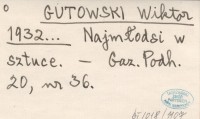 GUTOWSKI Wiktor
1932... Najmłodsi w
sztuce. — Gaz. Podh.
20, nr 36.